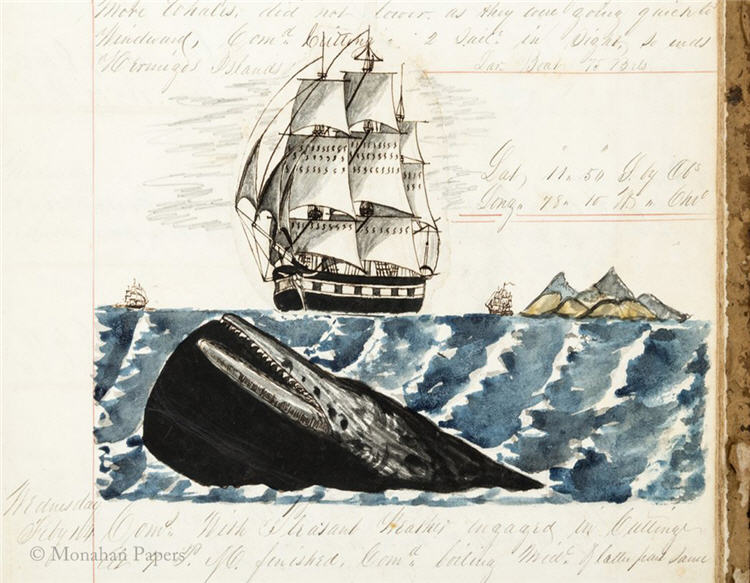 More Whales, did not lower, as they were going quick to
Windward, Comd Cutting 2 Sails in Sight, So ends
Hormigos Islands Lar Boat 75 Bbls
Lat, 11 " 50 S. by Obs
Long 78 " 10 W " Chrt
Wednesday
Feby 14 Comd With Pleasant Weather engaged in Cutting
finished, Comd boiling Midd & latter part Same
© Monahan Papers